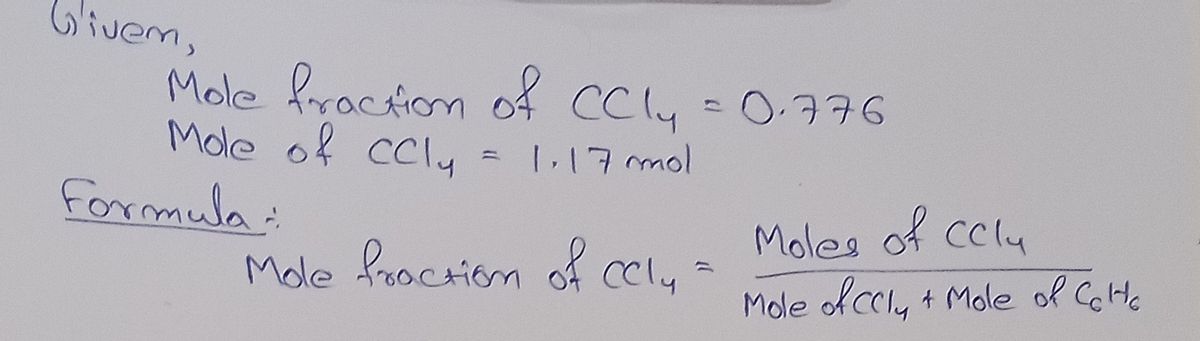 Given,
Mole fraction of CCl4 = 0.776
Mole of CCl4 = 1.17 mol
Formula :
Mole fraction of CCl4 = Moles of CCl4
Mole of CCl4 + Mole of C6H6